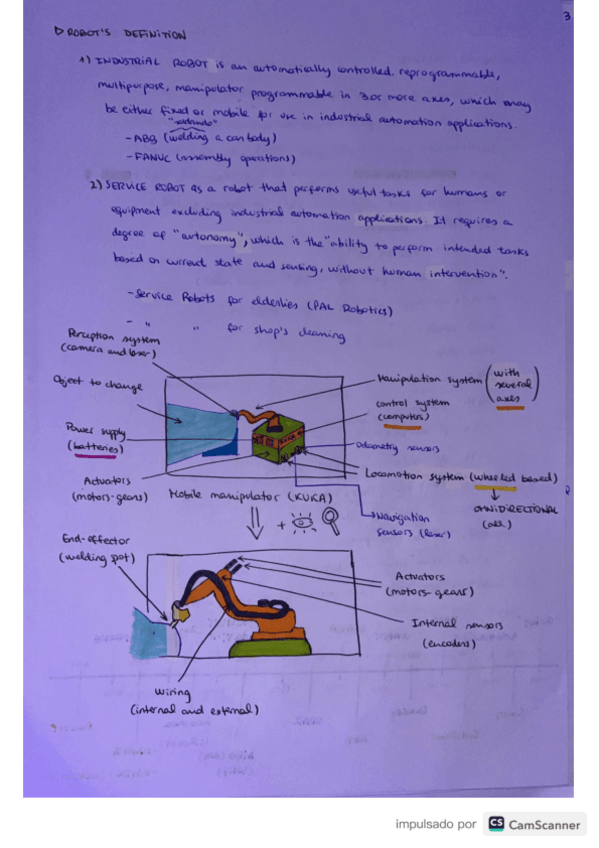 3
▷ ROBOT'S DEFINITION
1) INDUSTRIAL ROBOT is an automatically controlled, reprogrammable,
multipurpose, manipulator programmable in 3 or more axes, which may
be either fixed or mobile for use in industrial automation applications.
"soldando"
- ABB (welding a car body)
- FANUC (assembly operations)
2) SERVICE ROBOT as a robot that performs useful tasks for humans or
equipment excluding industrial automation applications. It requires a
degree of "autonomy", which is the "ability to perform intended tasks
based on current state and sensing, without human intervention".
- Service Robots for elderlies (PAL Robotics)
- " " for shop's cleaning
Perception system
(camera and laser)
Object to change
Power supply
(batteries)
Actuators
(motors-gears)
Manipulation system (with several axes)
control system
(computer)
Odometry sensors
Locomotion system (wheeled based)
OMNIDIRECTIONAL
Navigation
sensors (laser)
Mobile manipulator (KUKA)
+
End-effector
(welding spot)
Actuators
(motors-gears)
Internal sensors
(encoders)
Wiring
(internal and external)
impulsado por CS CamScanner